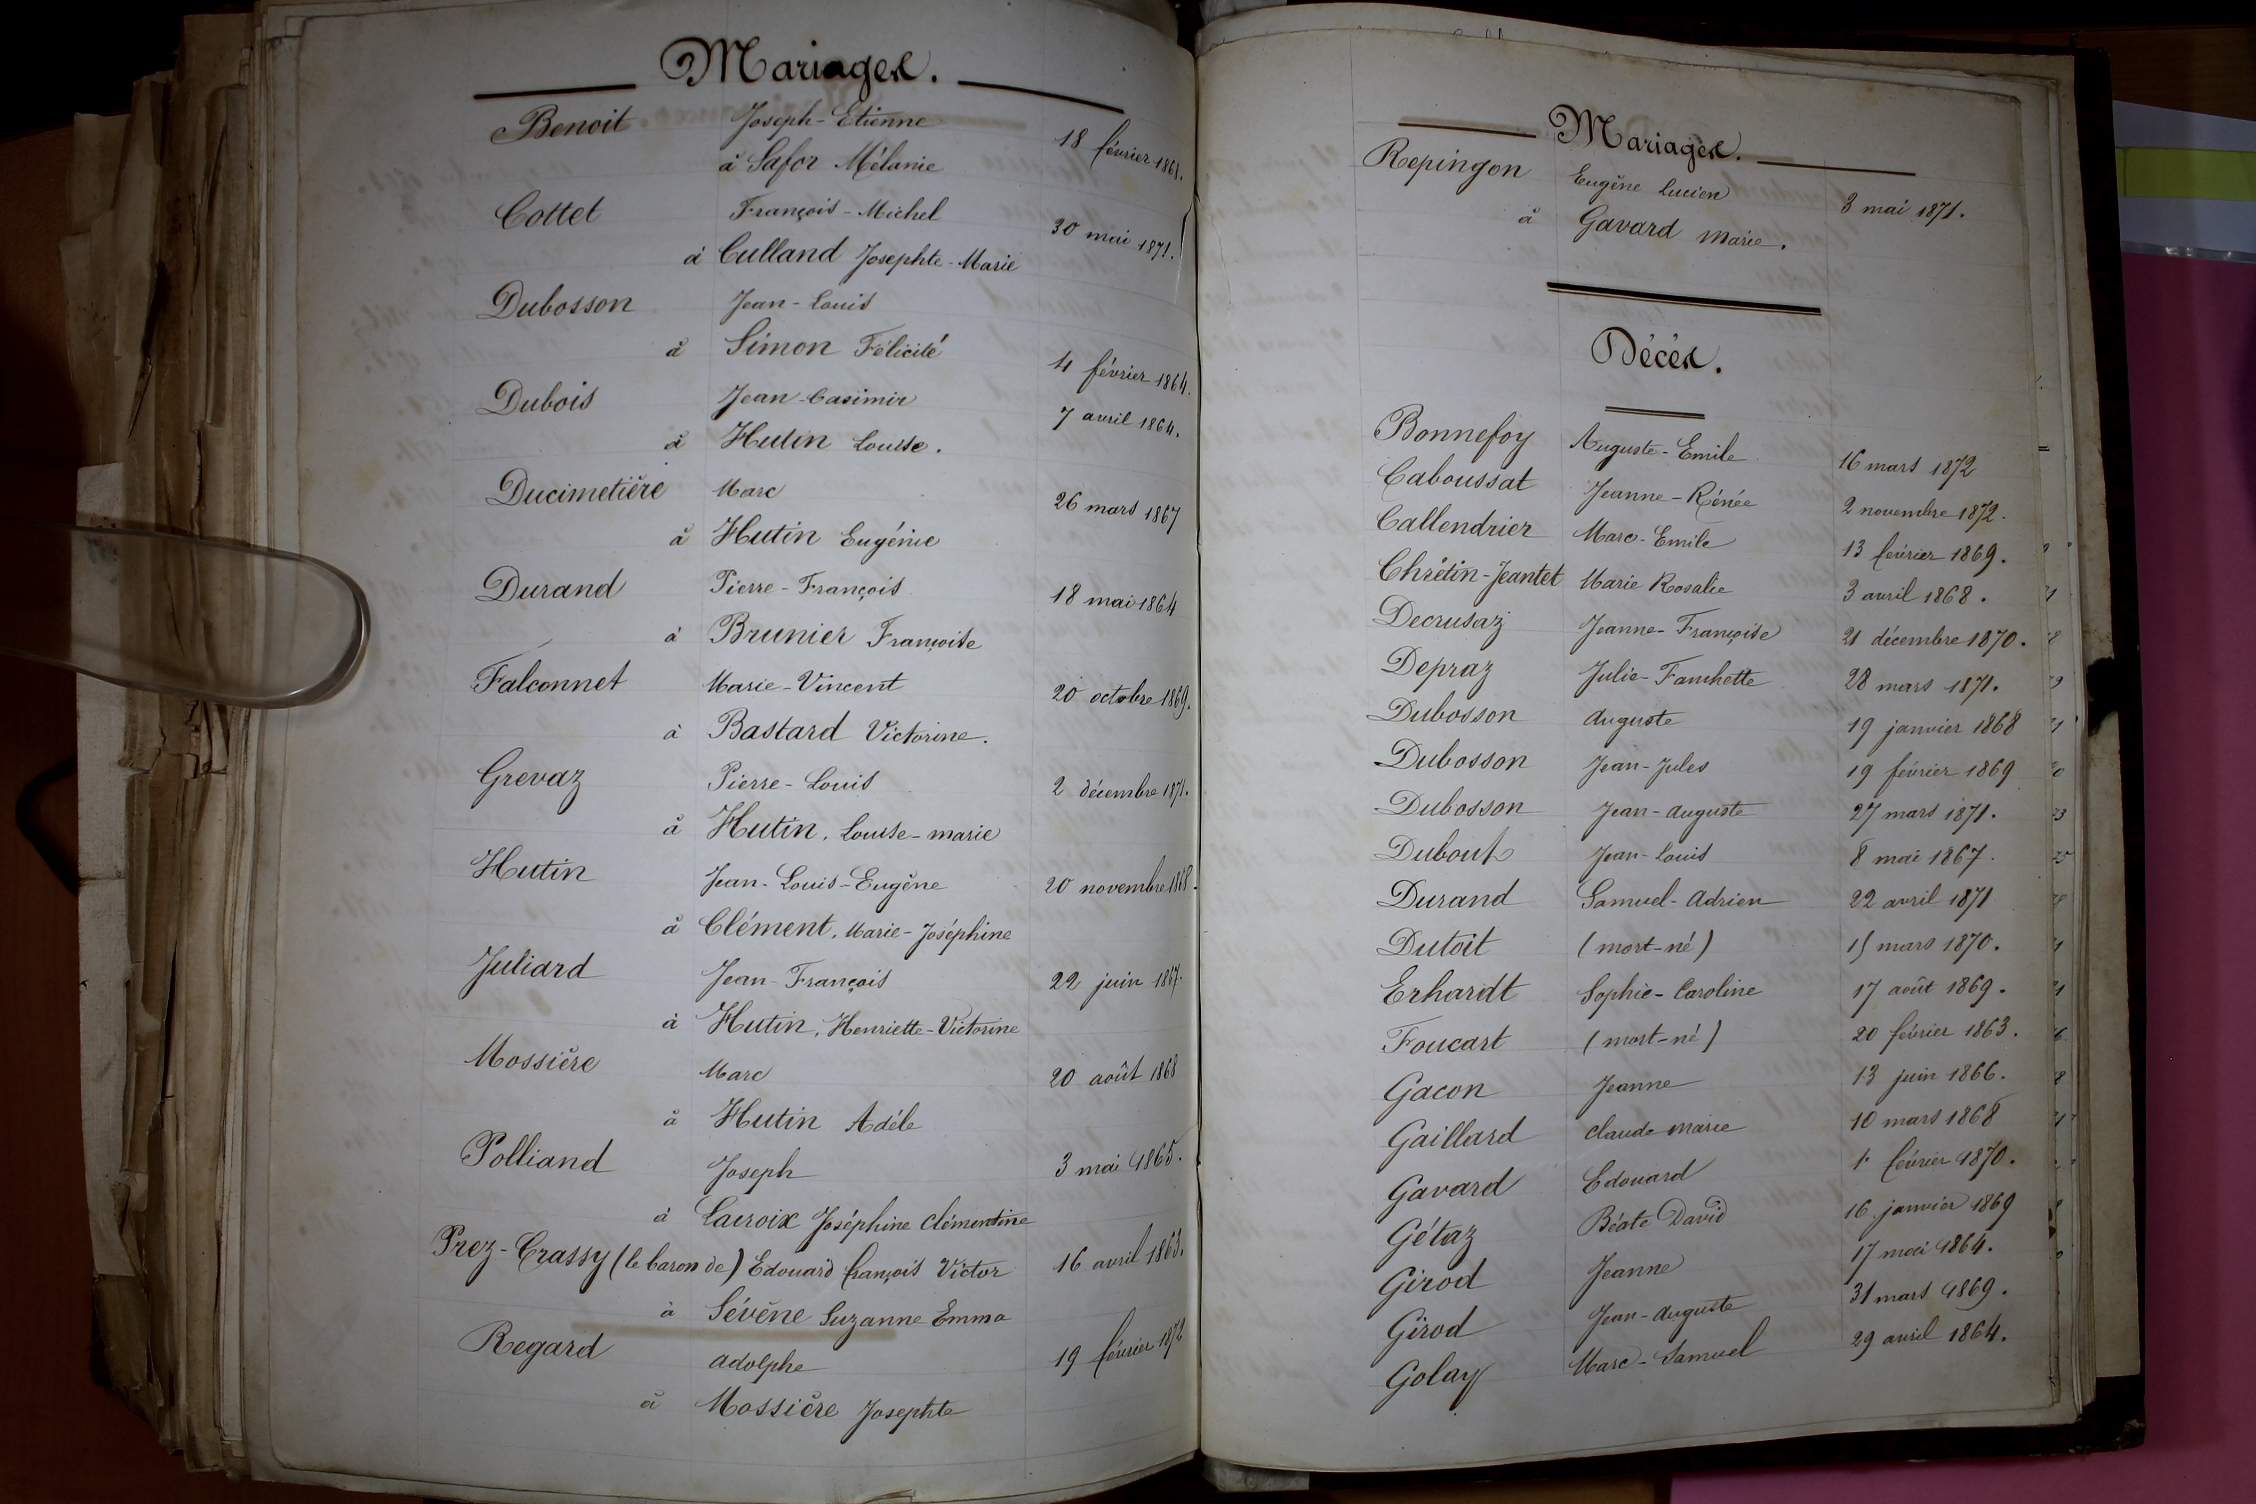 Mariages.
Benoit Joseph-Etienne 18 février 1861.
à Safor Mélanie
Cottet François-Michel 30 mai 1871.
à Culland Josephte-Marie
Dubosson Jean-Louis
à Simon Félicité 4 février 1864.
Dubois Jean-Casimir 7 avril 1864.
à Hutin Louise.
Ducimetière Marc 26 mars 1867
à Hutin Eugénie
Durand Pierre-François 18 mai 1864
à Brunier Françoise
Falconnet Marie-Vincent 20 octobre 1869.
à Bastard Victorine.
Grevaz Pierre-Louis 2 décembre 1871.
à Hutin, Louise-marie
Hutin Jean-Louis-Eugène 20 novembre 1868.
à Clément, Marie-Joséphine
Juliard Jean-François 22 juin 1867.
à Hutin, Henriette-Victorine
Mossière Marc 20 août 1868
à Hutin Adèle
Polliand Joseph 3 mai 1865.
à Lacroix Joséphine Clémentine
Prez-Crassy (le baron de) Edouard françois Victor 16 avril 1863.
à Sévène Suzanne Emma
Regard adolphe 19 février 1872
à Mossière Josephte
Mariages.
Repingon Eugène Lucien 3 mai 1871.
à Gavard Marie.
Décès.
Bonnefoy Auguste-Emile 16 mars 1872
Caboussat Jeanne-Rénée 2 novembre 1872.
Callendrier Marc-Emile 13 février 1869.
Chrétin-Jeantet Marie Rosalie 3 avril 1868.
Decrusaz Jeanne-Françoise 21 décembre 1870.
Depraz Julie-Fanchette 28 mars 1871.
Dubosson auguste 19 janvier 1868
Dubosson Jean-Jules 19 février 1869
Dubosson Jean-auguste 27 mars 1871.
Dubout Jean-Louis 8 mai 1867.
Durand Samuel-Adrien 22 avril 1871
Dutoit (mort-né) 15 mars 1870.
Erhardt Sophie-Caroline 17 août 1869.
Foucart (mort-né) 20 février 1863.
Gacon Jeanne 13 juin 1866.
Gaillard claude marie 10 mars 1868
Gavard Edouard 1r février 1870.
Gétaz Béate David 16 janvier 1869
Girod Jeanne 17 mai 1864.
Girod Jean-auguste 31 mars 1869.
Golay Marc-Samuel 29 avril 1864.